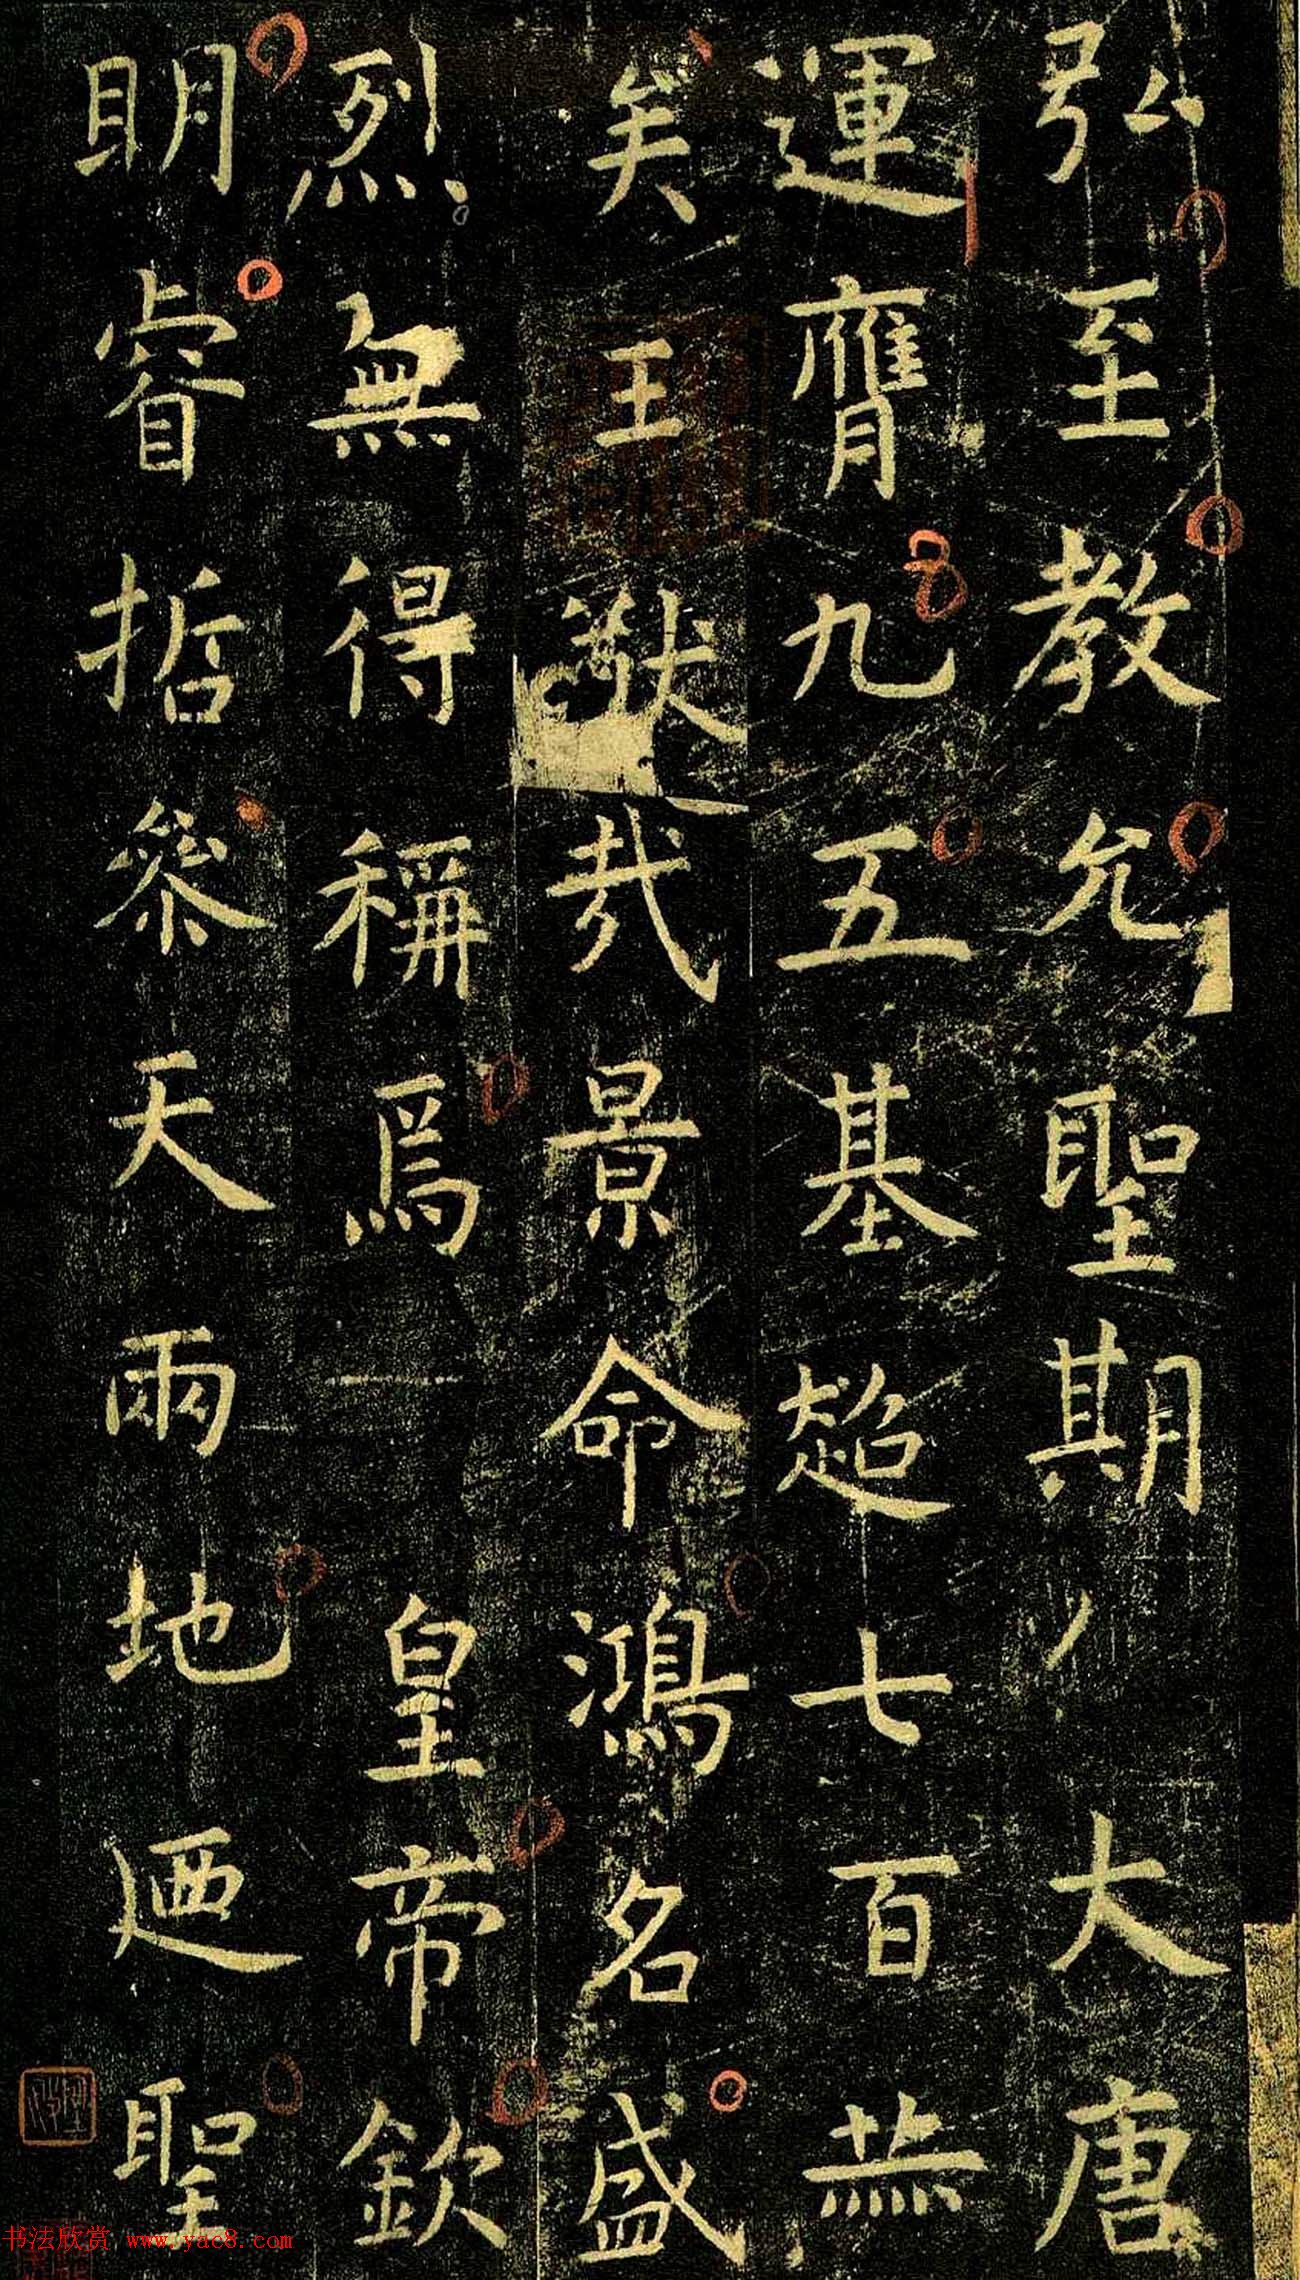 弘至教允聖期大唐
運膺九五基超七百赫
矣王猷哉景命鴻名盛
烈無得稱焉皇帝欽
明睿哲參天兩地迺聖
书法欣赏 www.yac8.com